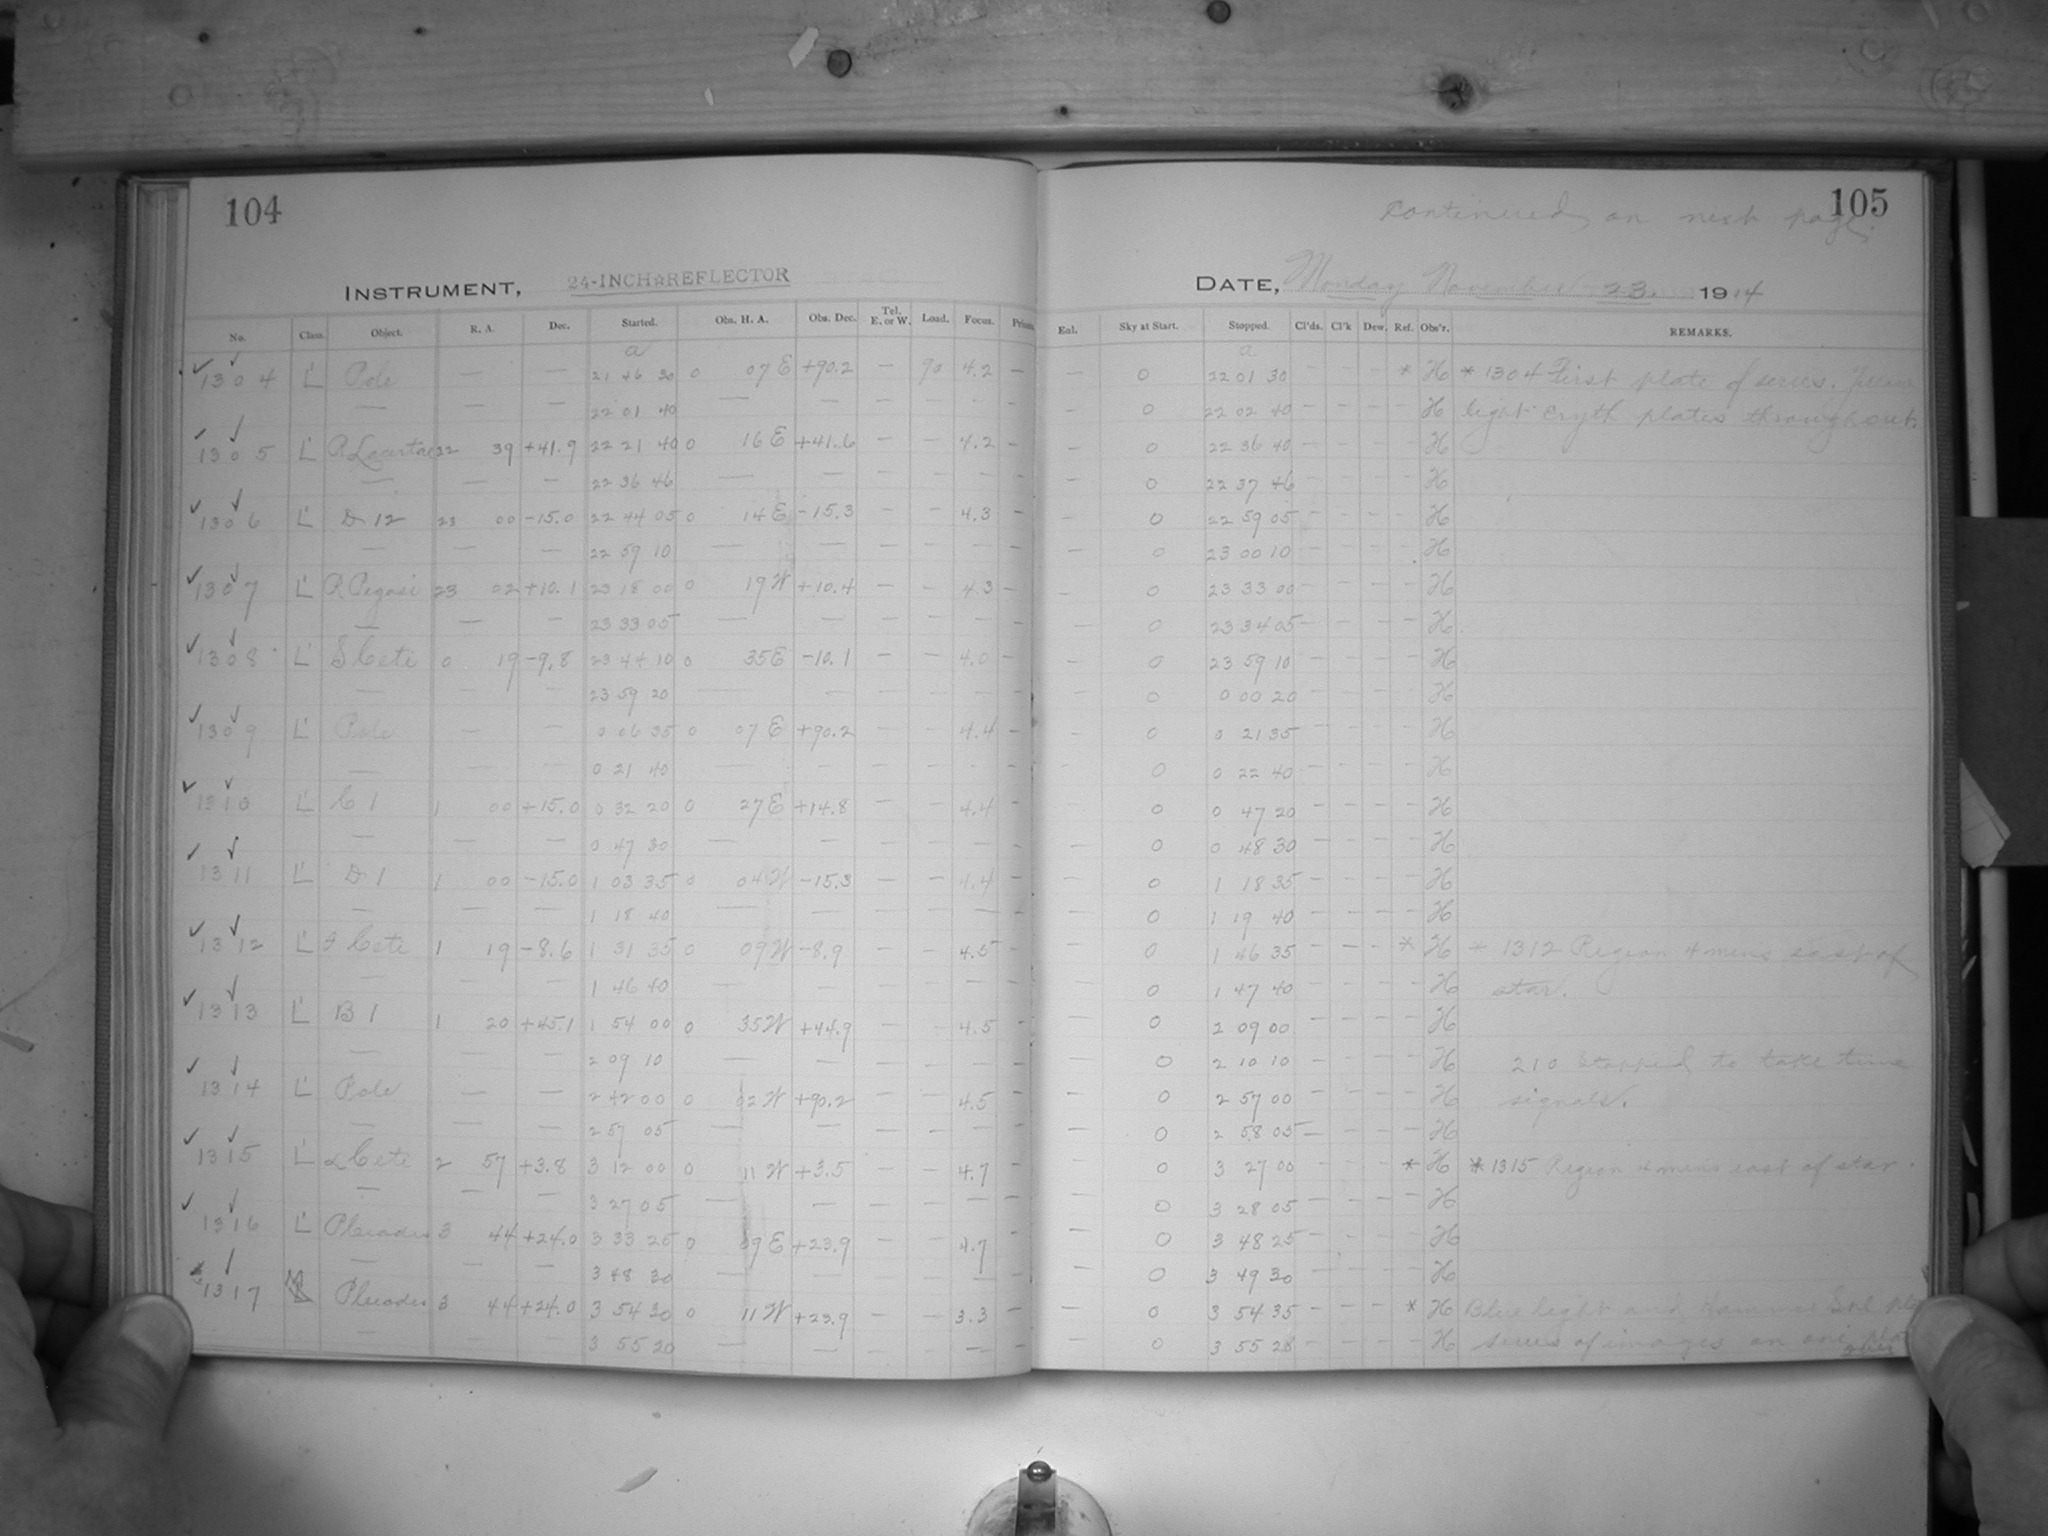 104
105
continued on next page.
INSTRUMENT, 24-INCH☆REFLECTOR
DATE, Monday November 23. 1914
No. Class. Object. R. A. Dec. Started. Obs. H. A. Obs. Dec. Tel. E. or W. Load. Focus. Eal. Sky at Start. Stopped. Cl'ds. Cl'k Dew. Ref. Obs'r. REMARKS.
a a
1304 L' Pole — — 21 46 30 0 07 E +90.2 — 90 4.2 — — 0 22 01 30 — — — * H * 1304 First plate of series. Yellow
— — — 22 01 40 — — — — — — — 0 22 02 40 — — — — H light Eryth plates throughout.
1305 L' R Lacertae 22 39 +41.9 22 21 40 0 16 E +41.6 — — 4.2 — — 0 22 36 40 — — — — H
— — — 22 36 46 — — — — — — — 0 22 37 46 — — — — H
1306 L' D 12 23 00 -15.0 22 44 05 0 14 E -15.3 — — 4.3 — — 0 22 59 05 — — — — H
— — — 22 59 10 — — — — — — — 0 23 00 10 — — — — H
1307 L' R Pegasi 23 02 +10.1 23 18 00 0 19 W +10.4 — — 4.3 — — 0 23 33 00 — — — — H
— — — 23 33 05 — — — — — — — 0 23 34 05 — — — — H
1308 L' S Ceti 0 19 -9.8 23 44 10 0 35 E -10.1 — — 4.0 — — 0 23 59 10 — — — — H
— — — 23 59 20 — — — — — — — 0 0 00 20 — — — — H
1309 L' Pole — — 0 06 35 0 07 E +90.2 — — 4.4 — — 0 0 21 35 — — — — H
— — — 0 21 40 — — — — — — — 0 0 22 40 — — — — H
1310 L' C 1 1 00 +15.0 0 32 20 0 27 E +14.8 — — 4.4 — — 0 0 47 20 — — — — H
— — — 0 47 30 — — — — — — — 0 0 48 30 — — — — H
1311 L' D 1 1 00 -15.0 1 03 35 0 04 W -15.3 — — 4.4 — — 0 1 18 35 — — — — H
— — — 1 18 40 — — — — — — — 0 1 19 40 — — — — H
1312 L' Ceti 1 19 -8.6 1 31 35 0 09 W -8.9 — — 4.5 — — 0 1 46 35 — — — * H * 1312 Region 4 mins east of
— — — 1 46 40 — — — — — — — 0 1 47 40 — — — — H star.
1313 L' B 1 1 20 +45.1 1 54 00 0 35 W +44.9 — — 4.5 — — 0 2 09 00 — — — — H
— — — 2 09 10 — — — — — — — 0 2 10 10 — — — — H 210 Stopped to take time
1314 L' Pole — — 2 42 00 0 02 W +90.2 — — 4.5 — — 0 2 57 00 — — — — H signals.
— — — 2 57 05 — — — — — — — 0 2 58 05 — — — — H
1315 L' α Ceti 2 57 +3.8 3 12 00 0 11 W +3.5 — — 4.7 — — 0 3 27 00 — — — * H * 1315 Region 4 mins east of star.
— — — 3 27 05 — — — — — — — 0 3 28 05 — — — — H
1316 L' Pleiades 3 44 +24.0 3 33 25 0 09 E +23.9 — — 4.7 — — 0 3 48 25 — — — — H
— — — 3 48 30 — — — — — — — 0 3 49 30 — — — — H
1317 Pleiades 3 44 +24.0 3 54 30 0 11 W +23.9 — — 3.3 — — 0 3 54 35 — — — * H Blue light and Hammer
— — — 3 55 20 — — — — — — — 0 3 55 28 — — — — H series of images on one